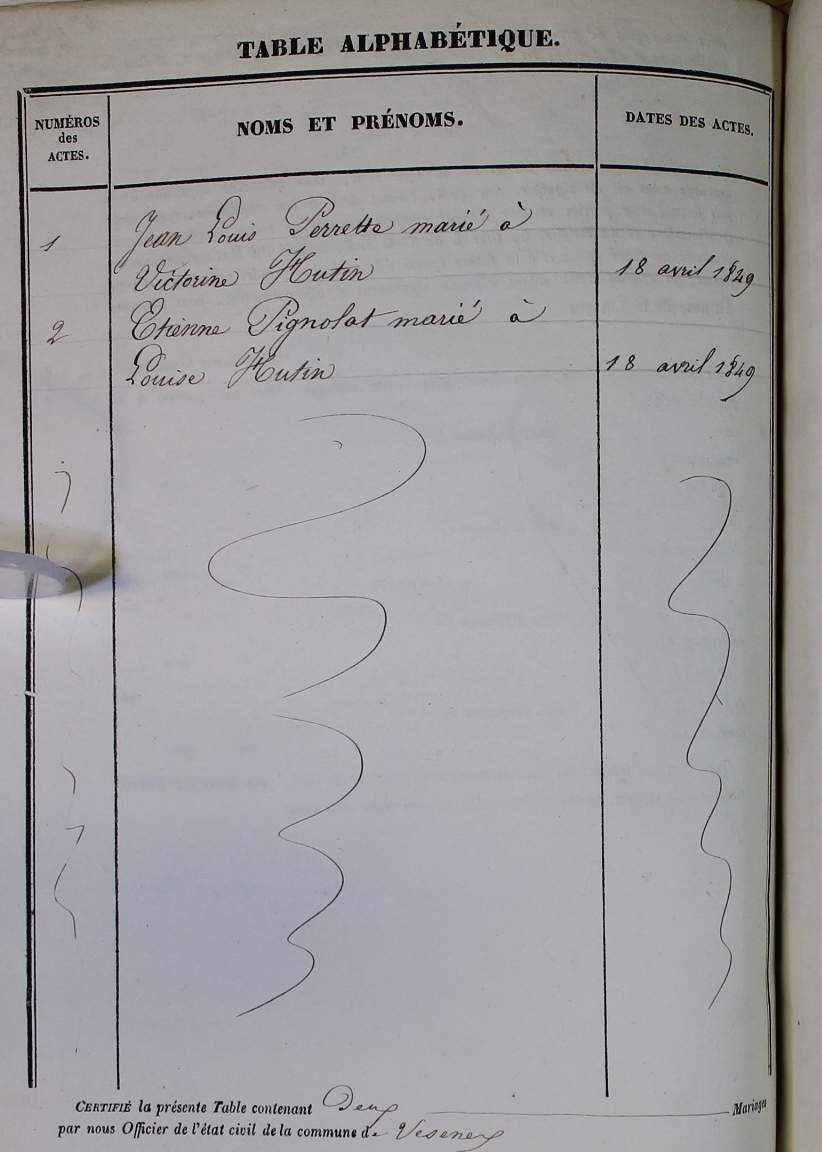 TABLE ALPHABÉTIQUE.
NUMÉROS
des
ACTES.
NOMS ET PRÉNOMS.
DATES DES ACTES.
1 Jean Louis Perrette marié à
Victorine Hutin 18 avril 1849
2 Etienne Pignolat marié à
Louise Hutin 18 avril 1849
CERTIFIÉ la présente Table contenant Deux Mariages
par nous Officier de l'état civil de la commune de Vesenex